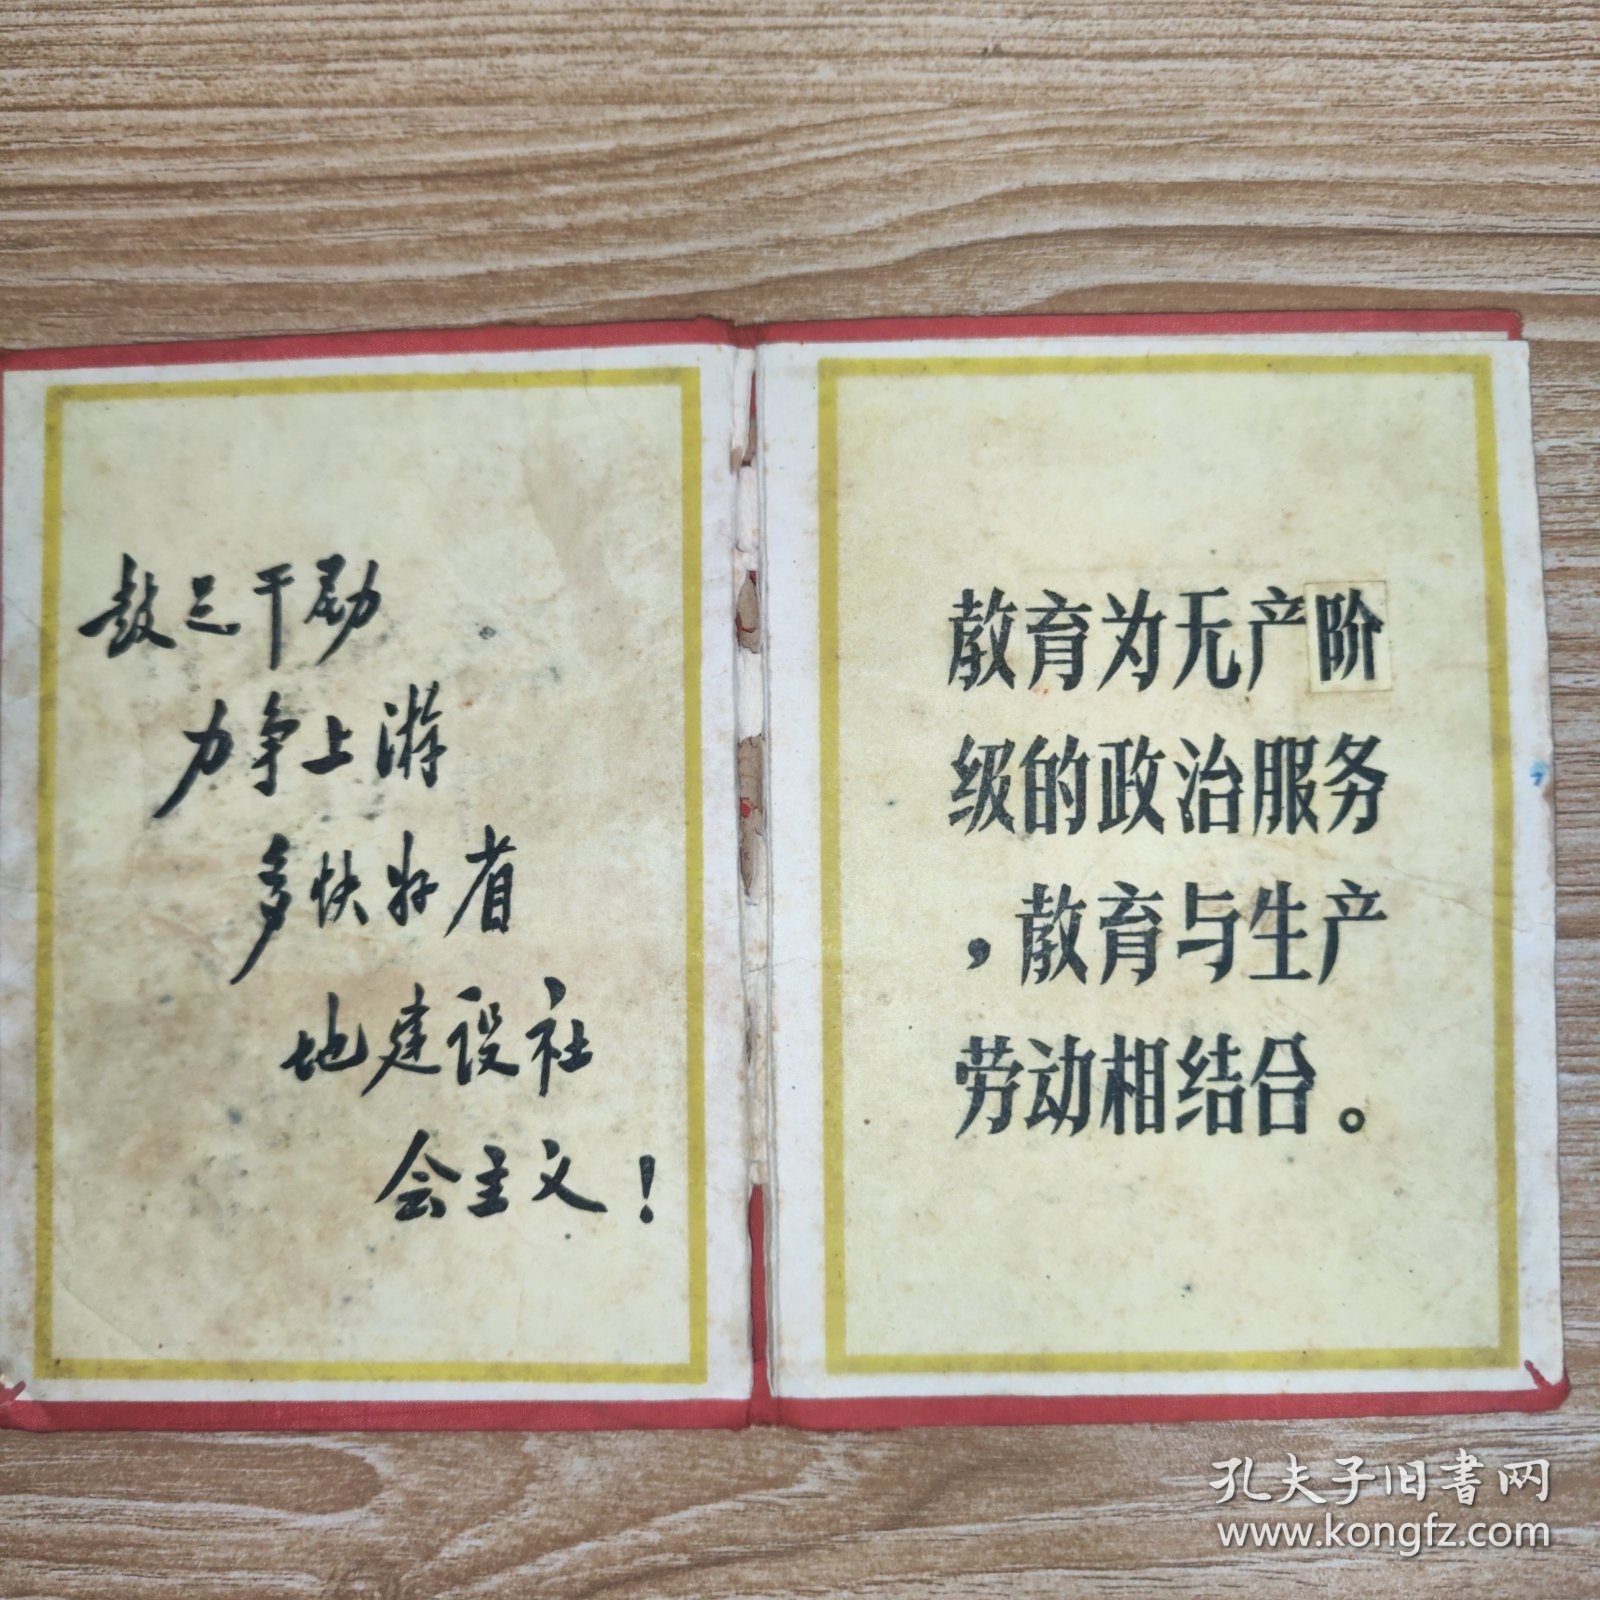 鼓足干劲
力争上游
多快好省
地建设社
会主义！
教育为无产阶
级的政治服务
，教育与生产
劳动相结合。
孔夫子旧书网
www.kongfz.com